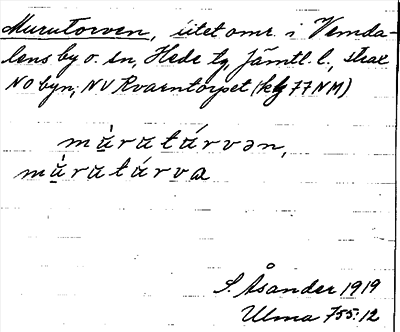 Murutorven, litet omr. i Vemda-
lens by o. sn, Hede tg, Jämtl. l., strax
NO byn, NV Kvarntorpet (kbl 77 NM)
mùratárvən,
mùratárva
S. Åsander 1919
Ulma 755:12